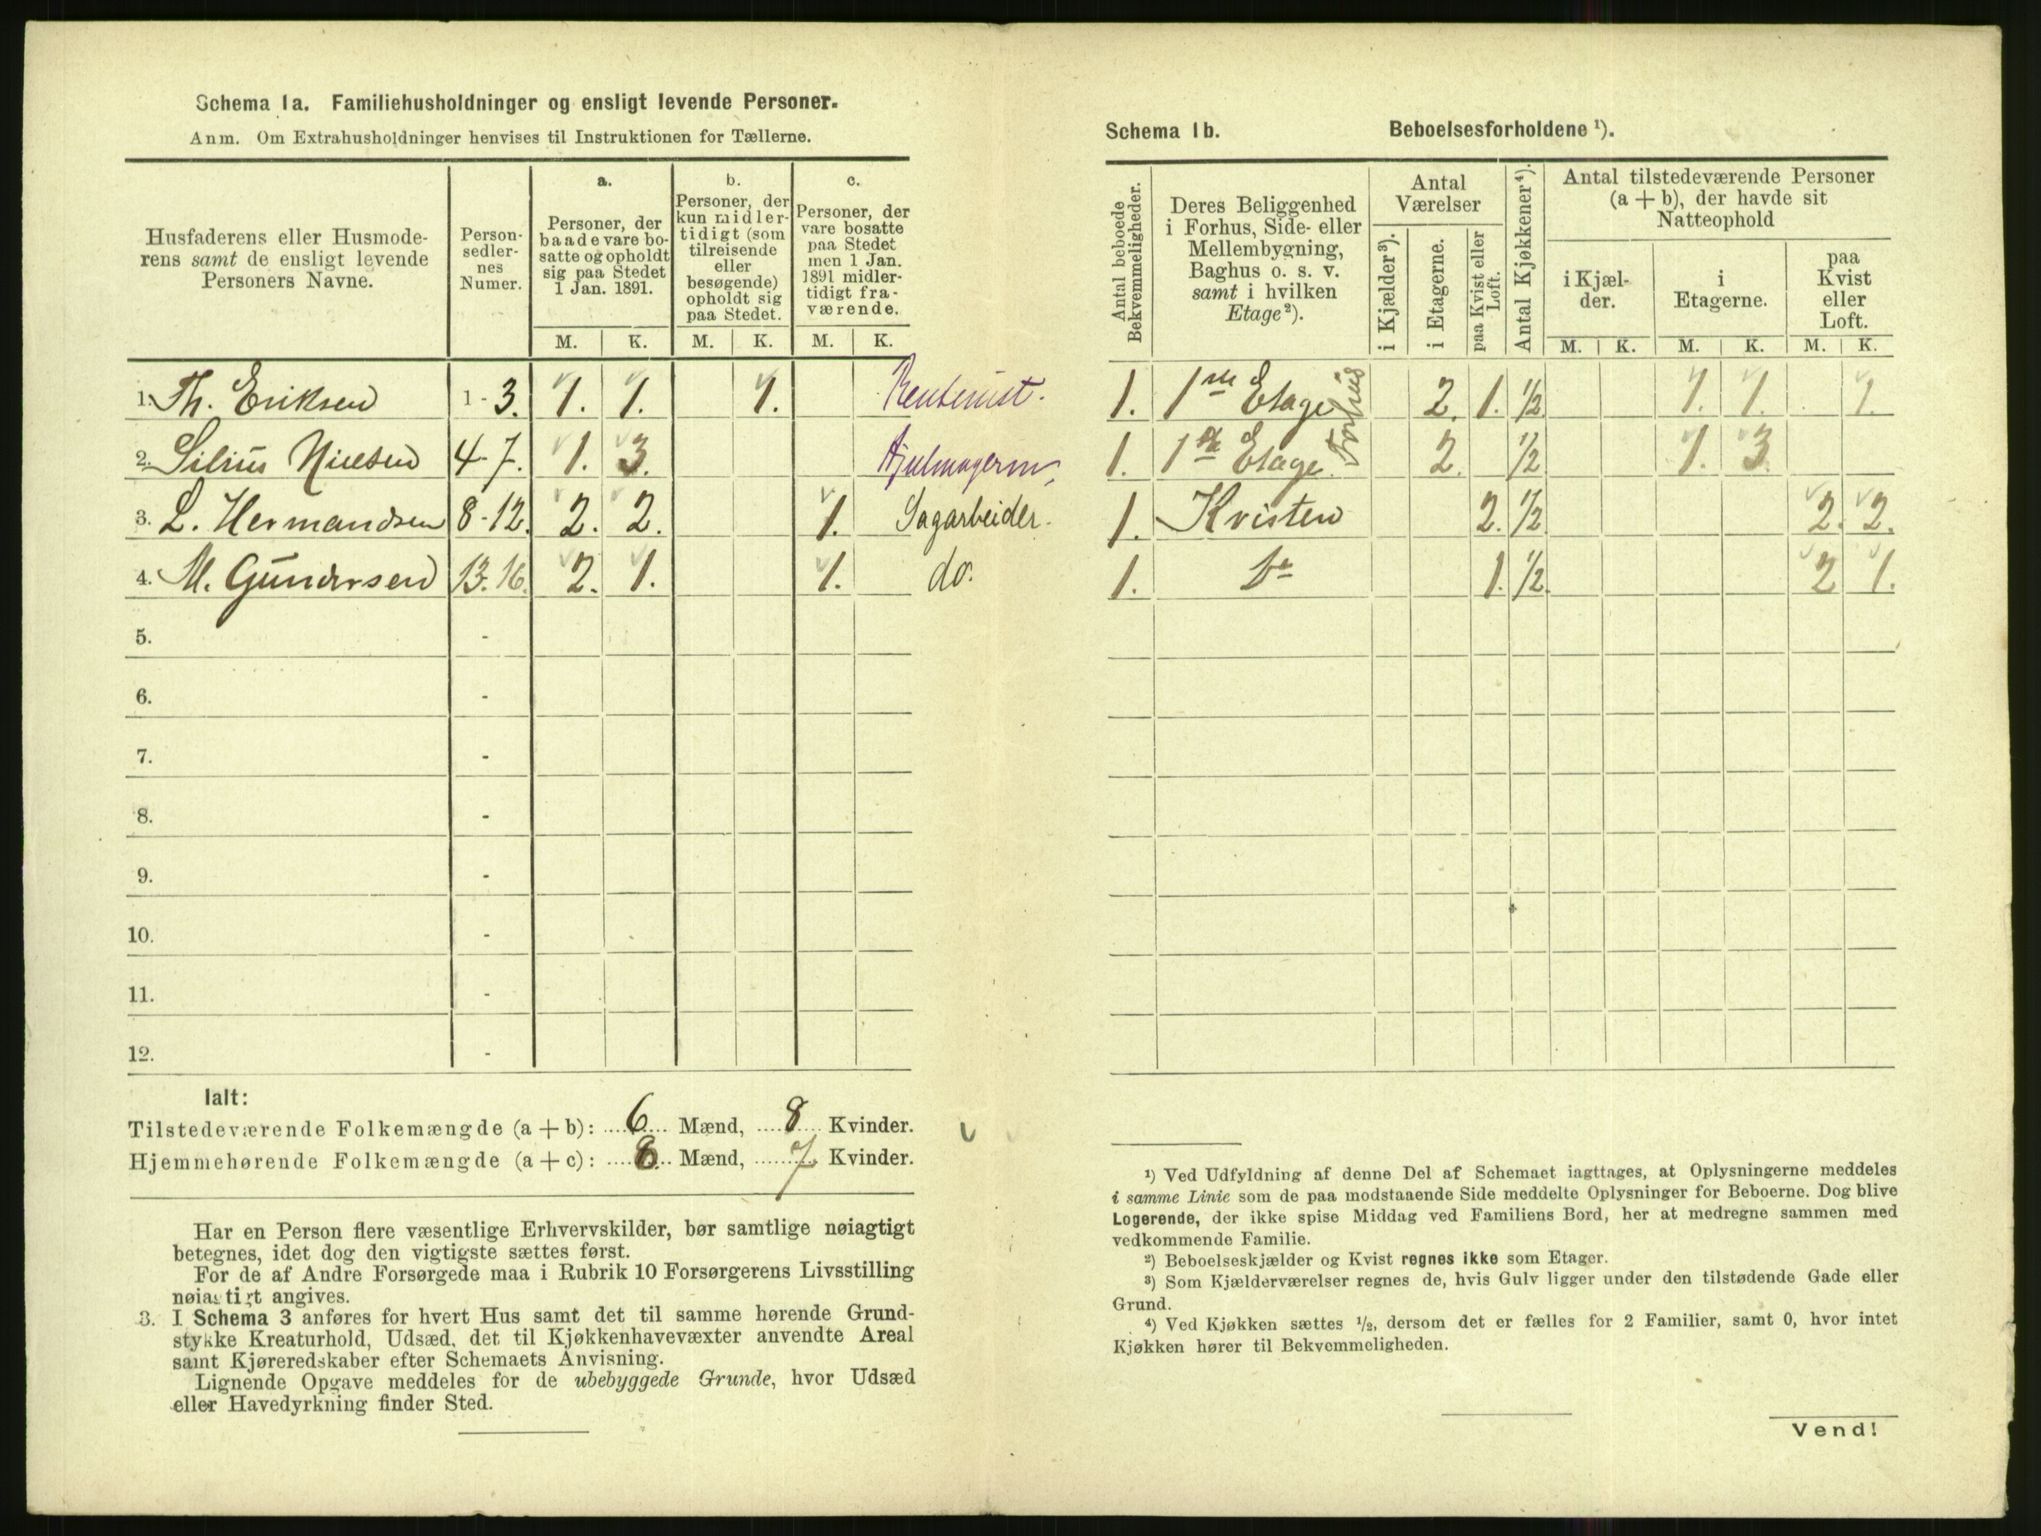 Schema 1a. Familiehusholdninger og ensligt levende Personer.
Anm. Om Extrahusholdninger henvises til Instruktionen for Tællerne.
Husfaderens eller Husmode-
rens samt de ensligt levende
Personers Navne.
Person-
sedler-
nes
Numer.
a.
Personer, der
baade vare bo-
satte og opholdt
sig paa Stedet
1 Jan. 1891.
b.
Personer, der
kun midler-
tidigt (som
tilreisende
eller
besøgende)
opholdt sig
paa Stedet.
c.
Personer, der
vare bosatte
paa Stedet
men 1 Jan.
1891 midler-
tidigt fra-
værende.
M. K. M. K. M. K.
1. Th. Eriksen 1 - 3. 1. 1. 1. Rentenist.
2. Silius Nielsen 4 - 7. 1. 3. Hjulmagerm,
3. L. Hermandsen 8 - 12. 2. 2. 1. Sagarbeider.
4. M. Gundersen 13 - 16. 2. 1. 1. do.
5. -
6. -
7. -
8. -
9. -
10. -
11. -
12. -
Ialt:
Tilstedeværende Folkemængde (a + b): 6 Mænd, 8 Kvinder.
Hjemmehørende Folkemængde (a + c): 8 Mænd, 7 Kvinder.
Har en Person flere væsentlige Erhvervskilder, bør samtlige nøiagtigt
betegnes, idet dog den vigtigste sættes først.
For de af Andre Forsørgede maa i Rubrik 10 Forsørgerens Livsstilling
nøiagtigt angives.
3. I Schema 3 anføres for hvert Hus samt det til samme hørende Grund-
stykke Kreaturhold, Udsæd, det til Kjøkkenhavevæxter anvendte Areal
samt Kjøreredskaber efter Schemaets Anvisning.
Lignende Opgave meddeles for de ubebyggede Grunde, hvor Udsæd
eller Havedyrkning finder Sted.
Schema 1b. Beboelsesforholdene ¹).
Antal beboede
Bekvemmeligheder.
Deres Beliggenhed
i Forhus, Side- eller
Mellembygning,
Baghus o. s. v.
samt i hvilken
Etage²).
Antal
Værelser
i Kjælder³).
i Etagerne.
paa Kvist eller
Loft.
Antal Kjøkkener⁴).
Antal tilstedeværende Personer
(a + b), der havde sit
Natteophold
i Kjæl-
der.
i
Etagerne.
paa
Kvist
eller
Loft.
M. K. M. K. M. K.
1. 1ste Etage Forhus 2. 1. 1/2 1. 1. 1.
1. 1ste Etage. 2. 1/2 1. 3.
1. Kvisten 2. 1/2 2. 2.
1. 1. 1/2. 2 1.
¹) Ved Udfyldning af denne Del af Schemaet iagttages, at Oplysningerne meddeles
i samme Linie som de paa modstaaende Side meddelte Oplysninger for Beboerne. Dog blive
Logerende, der ikke spise Middag ved Familiens Bord, her at medregne sammen med
vedkommende Familie.
²) Beboelseskjælder og Kvist regnes ikke som Etager.
³) Som Kjælderværelser regnes de, hvis Gulv ligger under den tilstødende Gade eller
Grund.
⁴) Ved Kjøkken sættes ½, dersom det er fælles for 2 Familier, samt 0, hvor intet
Kjøkken hører til Bekvemmeligheden.
Vend!